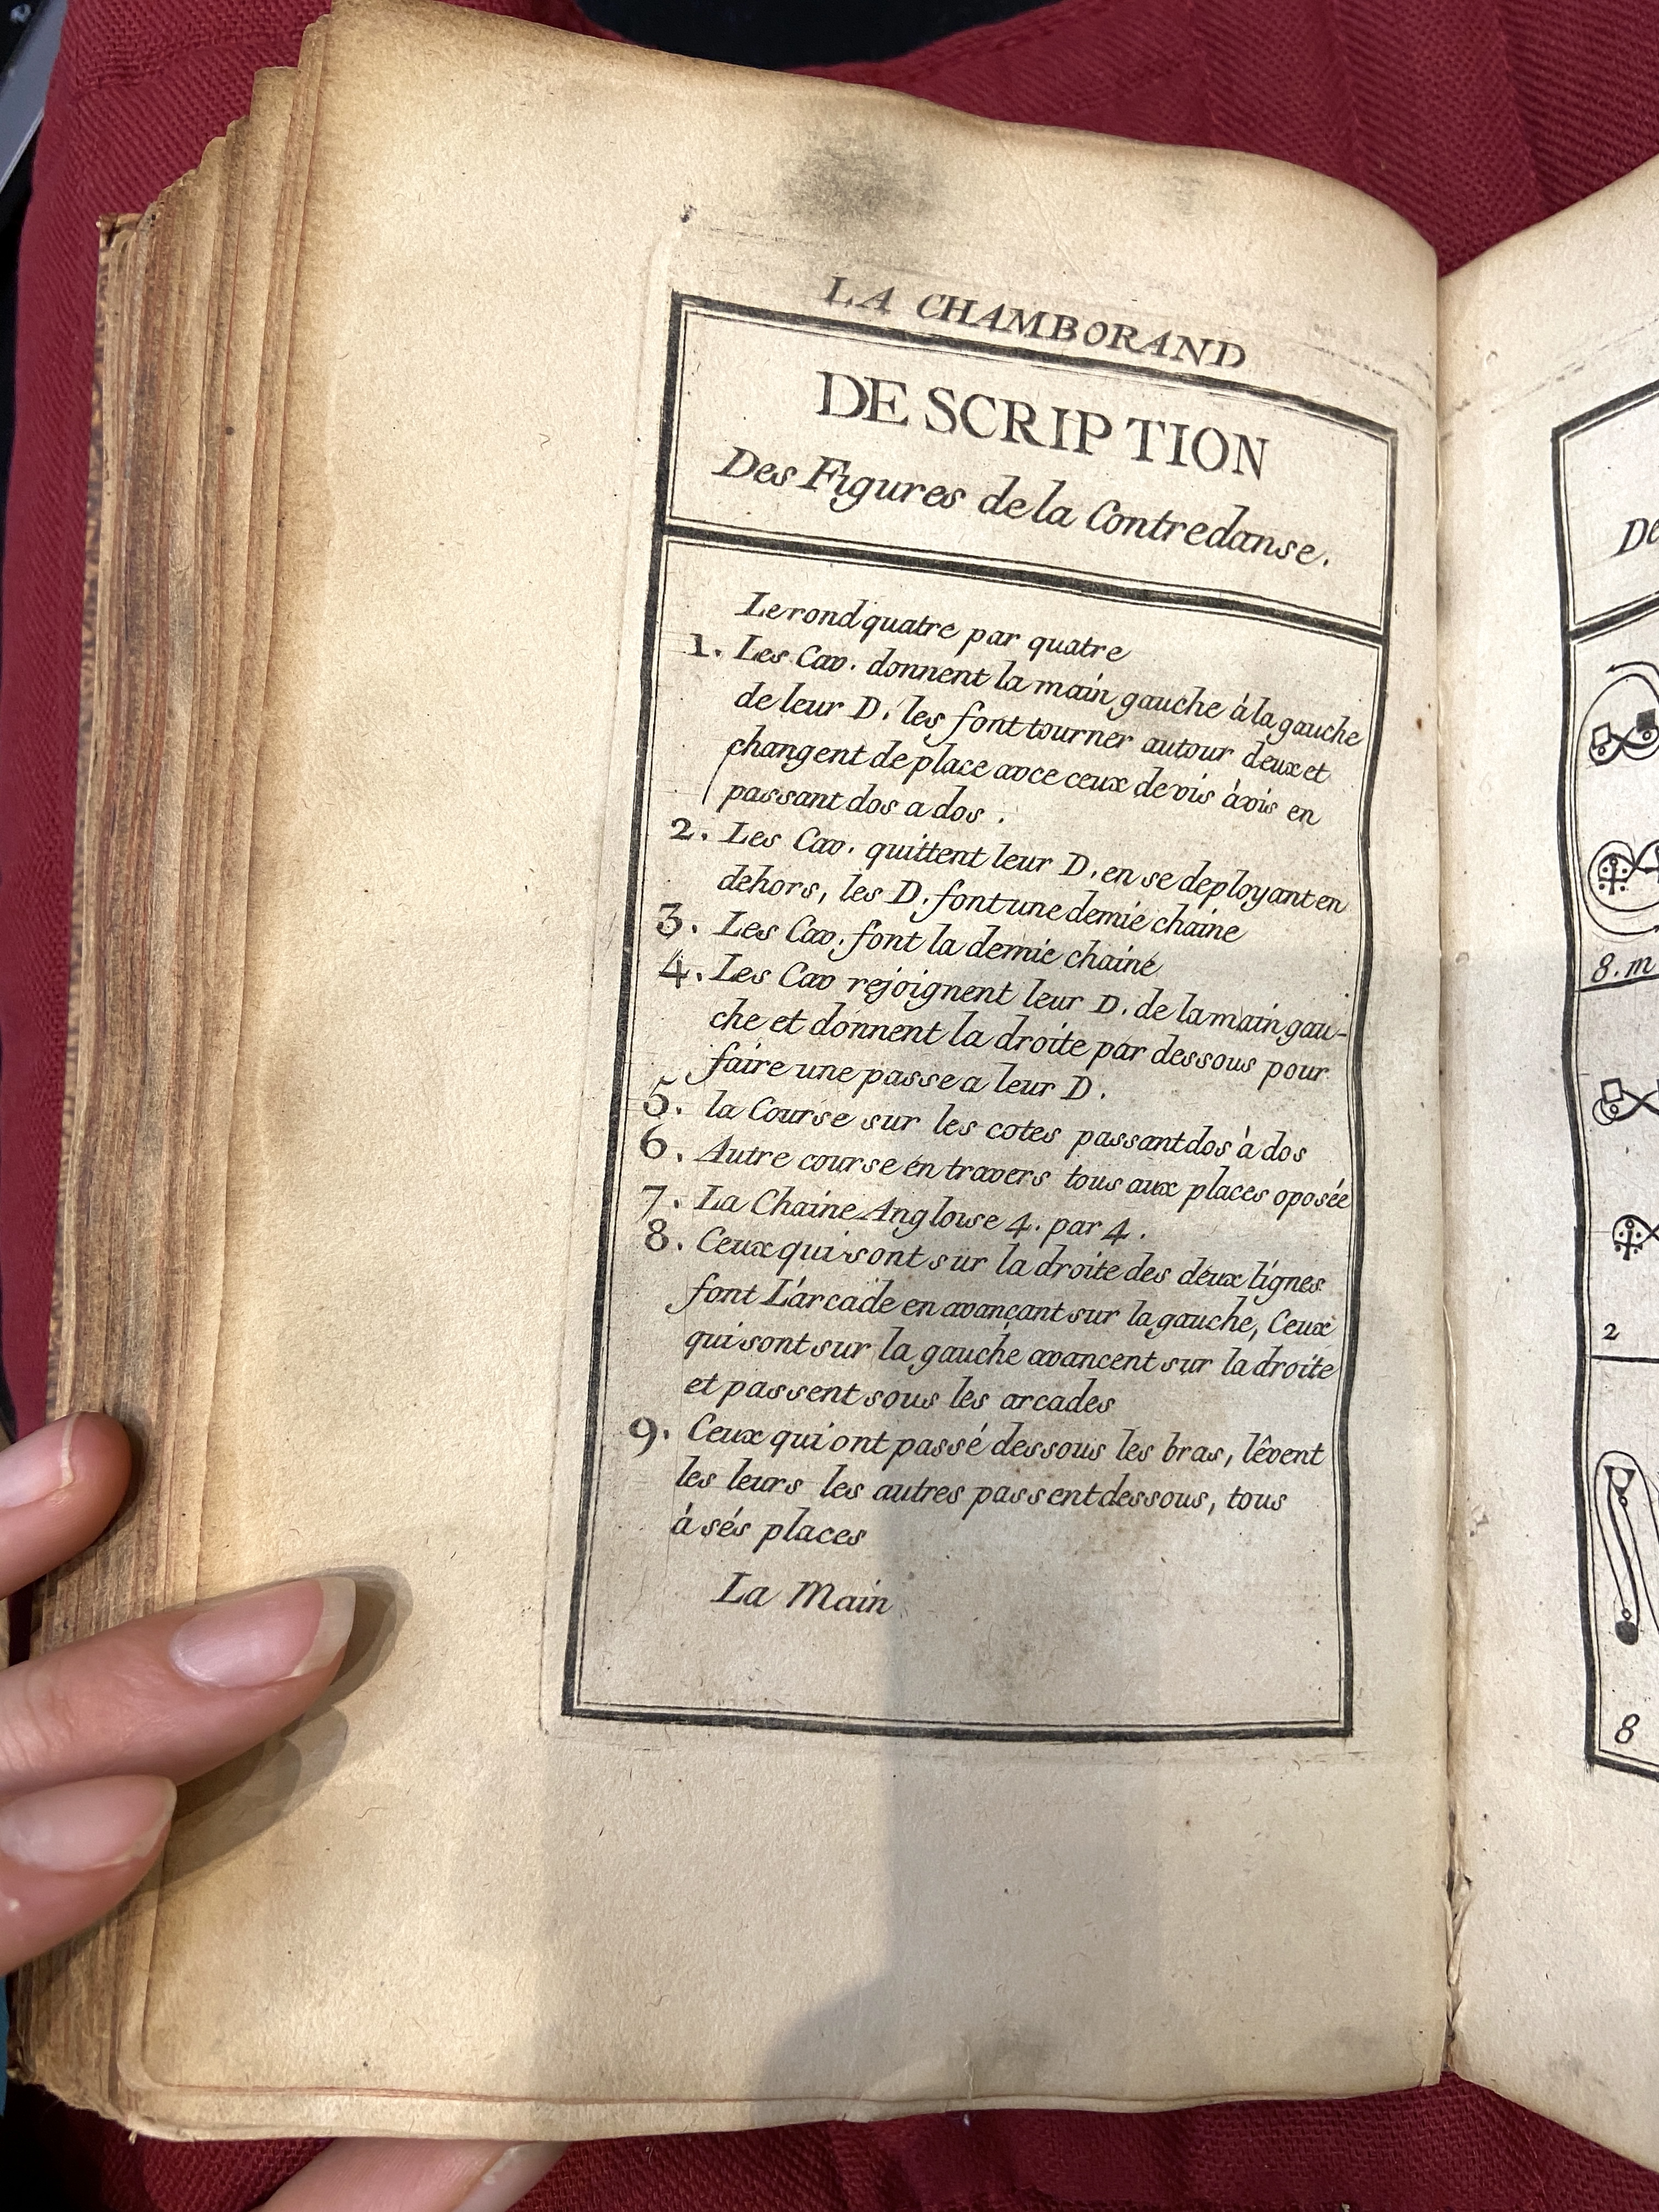 LA CHAMBORAND
DESCRIPTION
Des Figures de la Contredanse.
Le rond quatre par quatre
1. Les Cav. donnent la main gauche à la gauche
de leur D. les font tourner autour deux et
changent de place avce ceux de vis àvis en
passant dos a dos .
2. Les Cav. quittent leur D. en se deployant en
dehors, les D. font une demie chaine
3. Les Cav. font la demie chaine
4. Les Cav rejoignent leur D. de la main gau-
che et donnent la droite par dessous pour
faire une passe a leur D.
5. la Course sur les cotes passant dos à dos
6. Autre course en travers tous aux places oposée
7. La Chaine Angloise 4. par 4.
8. Ceux qui sont sur la droite des deux lignes
font L'arcade en avancant sur la gauche, Ceux
qui sont sur la gauche avancent sur la droite
et passent sous les arcades
9. Ceux qui ont passé dessous les bras, lêvent
les leurs les autres passent dessous, tous
à sés places
La Main
De
8. m
2
8